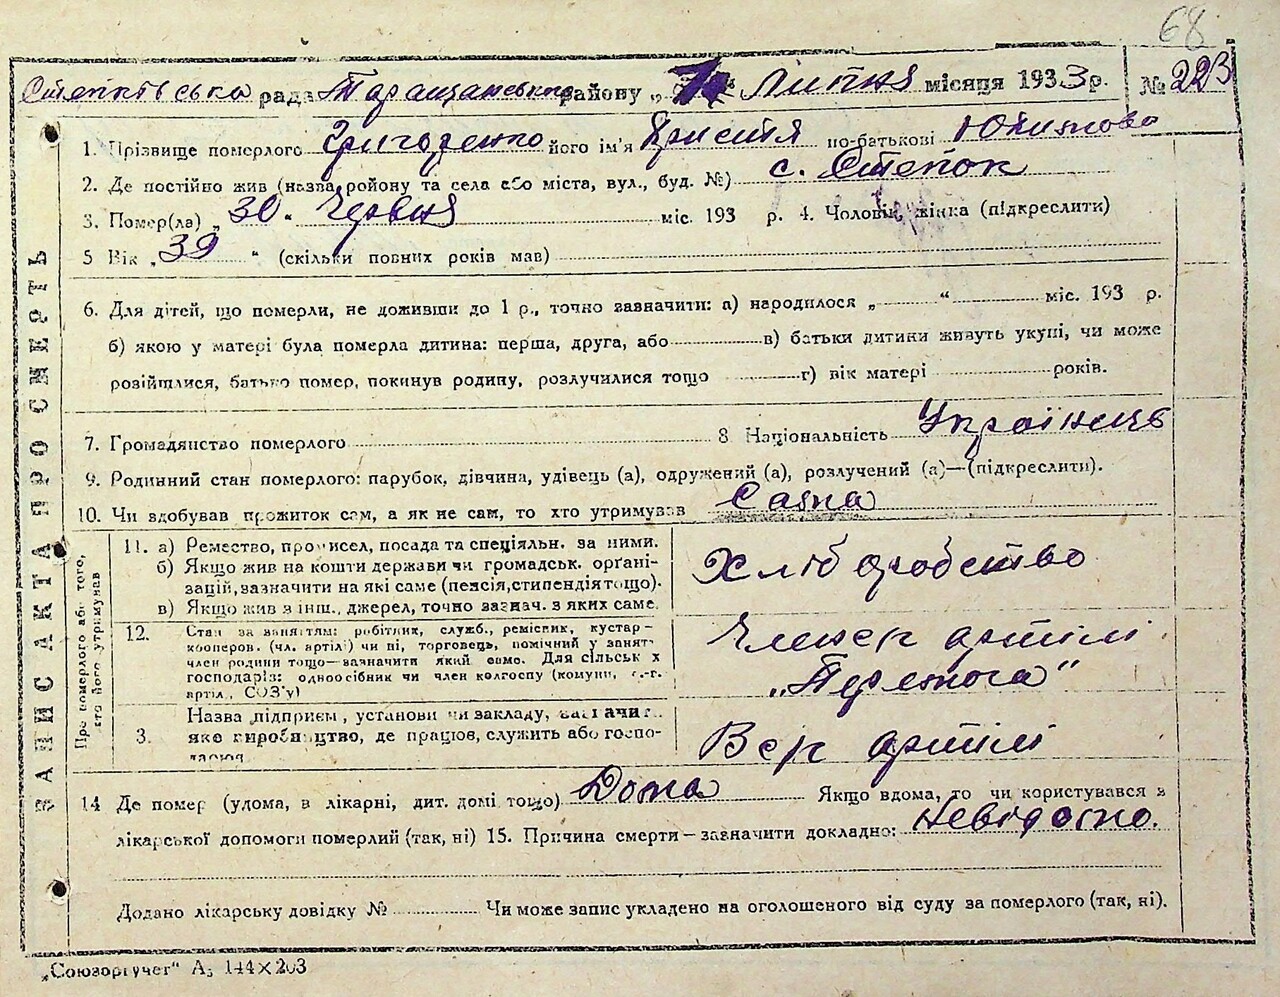 68
Степківська рада Таращанського району „7" Липня місяця 1933 р. № 223
1. Прізвище померлого Григоренко його ім'я Прісття по-батькові Юхимово
2. Де постійно жив (назва ройону та села або міста, вул., буд. №) с. Степок
3. Помер(ла) „30" Червня міс. 193 р. 4. Чоловік, жінка (підкреслити)
5 Вік „39" (скільки повних років мав)
6. Для дітей, що померли, не доживши до 1 р., точно зазначити: а) народилося „ " міс. 193 р.
б) якою у матері була померла дитина: перша, друга, або в) батьки дитини живуть укупі, чи може
розійшлися, батько помер, покинув родину, розлучилися тощо г) вік матері років.
7. Громадянство померлого 8. Національність Українець
9. Родинний стан померлого: парубок, дівчина, удівець (а), одружений (а), розлучений (а)—(підкреслити).
10. Чи здобував прожиток сам, а як не сам, то хто утримував Сама
11. а) Ремество, промисел, посада та спеціяльн. за ними.
б) Якщо жив на кошти держави чи громадськ. орґані-
зацій, зазначити на які саме (пенсія, стипендія тощо).
в) Якщо жив з інш., джерел, точно зазнач. з яких саме.
Хліборобство
12. Стан за заняттям: робітник, служб., ремісник, кустар-
кооперов. (чл. артілі) чи ні, торговець, помічний у занят.
член родини тощо—зазначити який само. Для сільськ х
господарів: одноосібник чи член колгоспу (комуни, с.-г.
артіл., СОЗ'у)
Член артілі
„Перемога"
3. Назва підприєм, установи чи закладу, зазначит..
яке виробництво, де працюв, служить або госпо-
В с/г артілі
14 Де помер (удома, в лікарні, дит. домі тощо) Дома Якщо вдома, то чи користувався з
лікарської допомоги померлий (так, ні) 15. Причина смерти—зазначити докладно: Невідомо.
Додано лікарську довідку № Чи може запис укладено на оголошеного від суду за померлого (так, ні).
„Союзоргучет" А₅ 144×203
ЗАПИС АКТА ПРО СМЕРТЬ
Про померлого або того,
хто його утримував